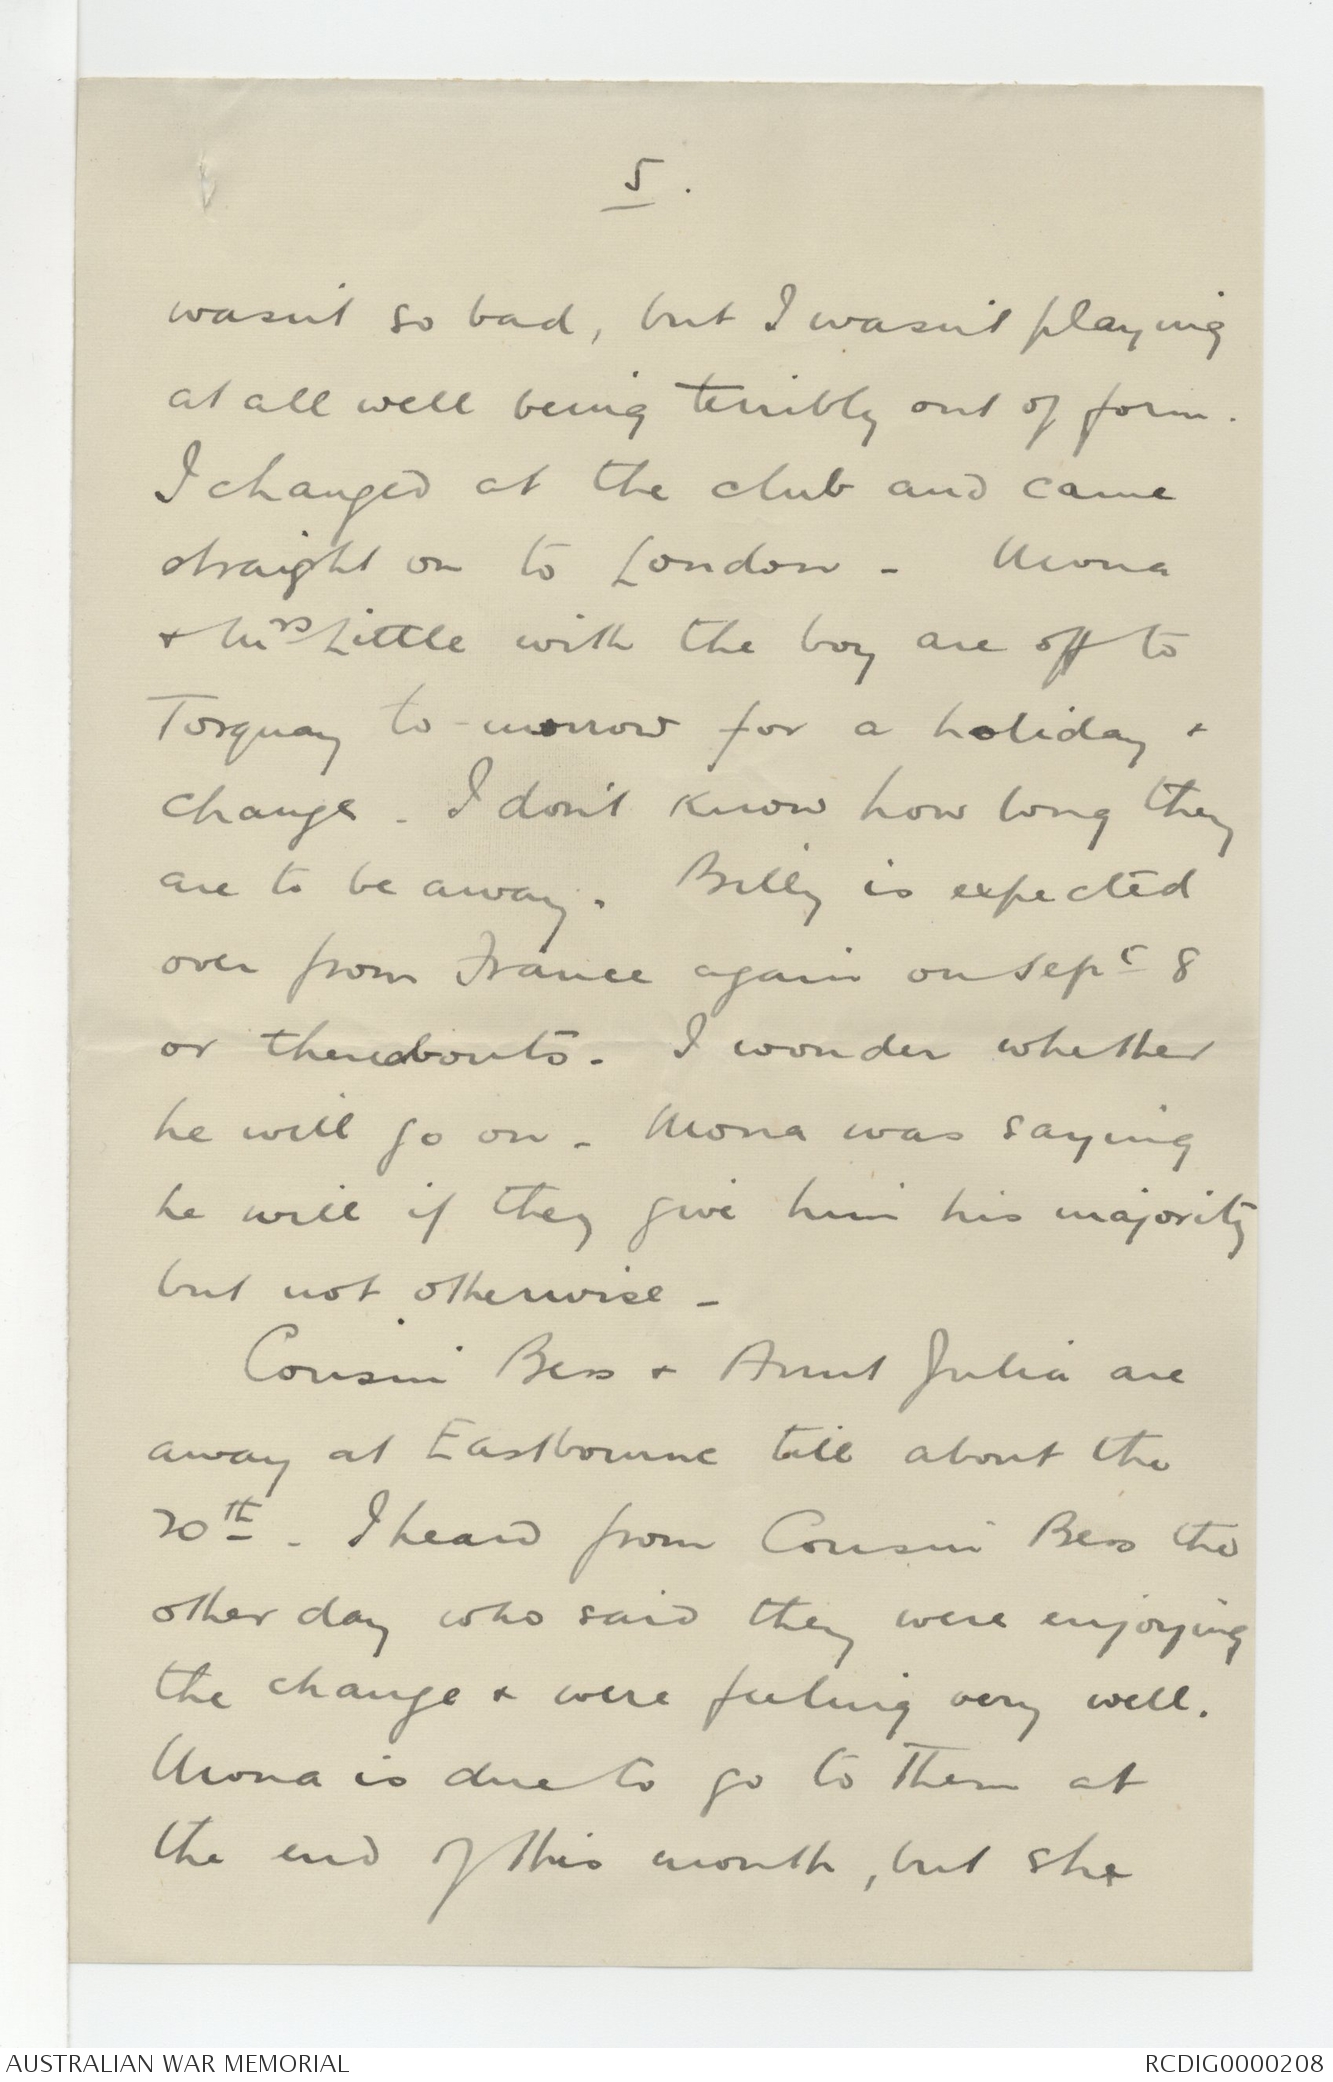 5.
wasn't so bad, but I wasn't playing
at all well being terribly out of form.
I changed at the club and came
straight on to London - Mona
+ Mrs Little with the boy are off to
Torquay to-morrow for a holiday +
change. I don't know how long they
are to be away. Billy is expected
over from France again on Sepr 8
or thereabouts. I wonder whether
he will go on - Mona was saying
he will if they give him his majority
but not otherwise -
Cousin Bess + Aunt Julia are
away at Eastbourne till about the
20th. I heard from Cousin Bess the
other day who said they were enjoying
the change + were feeling very well.
Mona is due to go to them at
the end of this month, but she
AUSTRALIAN WAR MEMORIAL
RCDIG0000208